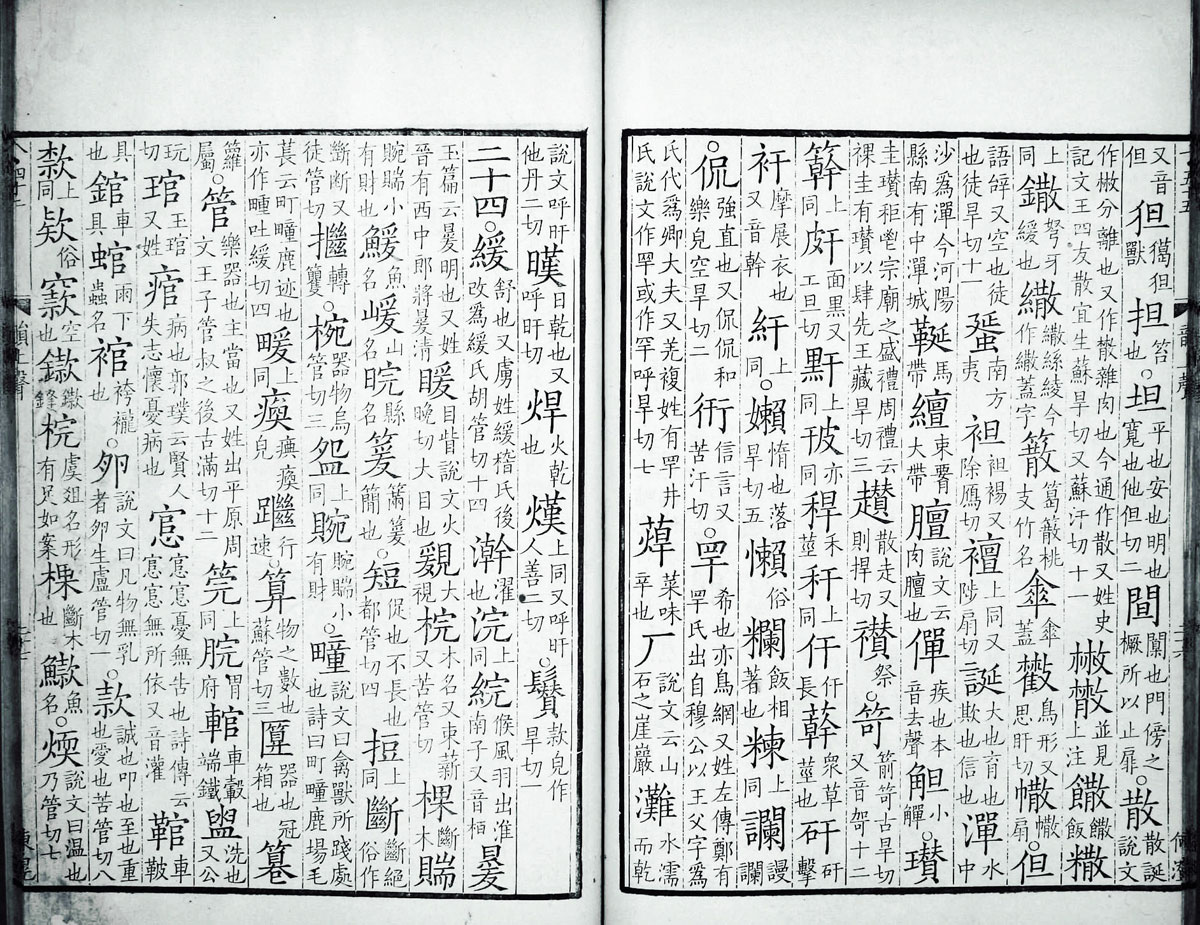 又音但狚獦狚獸担笞也○坦平也安也明也寬也他但切二闌也門傍之橛所以止扉○散散誕說文
作㪔分離也又作𢿱雜肉也今通作散又姓史記文王四友散宜生蘇旱切又蘇汗切十一㪔𢿱並見上注饊饊飯糤
上同鏾弩牙緩也繖繖絲綾今作繖蓋字䉈篙䉈桃支竹名傘傘蓋鳥形又思肝切㡂㡂扇○但
語辝又空也徒也徒旱切十一蜑南方夷袒袒裼又除鴈切襢上同又陟扇切二誕大也育也欺也信也潬水中
沙爲潬今河陽縣南有中潬城馬帶繵束要大帶膻說文云肉膻也僤疾也本音去聲觛小觶○瓚
圭瓚秬鬯宗廟之盛禮周禮云祼圭有瓚以肆先王藏旱切三趲散走又則捍切禶祭○笴箭笴古旱切又音哿十二
簳上同皯面黑又工旦切䵟上同亦上同稈禾莖秆上同仠仠長衆草莖也矸矸擊
衦摩展衣也又音幹上同○嬾惰也落旱切五懶俗糷飯相著也上同讕謾讕
○侃強直也又侃侃和樂皃空旱切二衎信言又苦汗切○罕希也亦鳥網又姓左傳鄭有罕氏出自穆公以王父字爲
氏代爲卿大夫又羌複姓有罕井氏說文作罕或作罕呼旱切七蔊菜味辛也厂說文云山石之崖巖灘水濡而乾
說文呼旰他丹二切暵日乾也又呼旰切焊火乾也熯上同又呼旰人善二切○款皃作旱切一
二十四○緩舒也又虜姓緩稽氏後改爲緩氏胡管切十四澣濯也浣上同綄候風羽出淮南子又音桓㬊
玉篇云㬊明也又姓晉有西中郎將㬊清暖目眥說文火晚切大目也大視梡木名又束薪又苦管切棵斷木腨
腕腨小有財也鰀魚名㟶山名晥縣名䈠䈠簡也○短促也不長也都管切四𢭃上同斷斷絕俗作
斷断又徒管切㩪轉籰○椀器物烏管切三盌上同䝹䝹腨小有財○疃說文曰禽獸所踐處也詩曰町疃鹿場毛
萇云町疃鹿迹也亦作畽吐緩切四畽上同瘓痶瘓皃躖行速○算物之數也蘇管切三匴器也冠箱也䔉
籮屬○管樂器也主當也又姓出平原周文王子管叔之後古滿切十二筦上同脘胃府輨車轂端鐵盥洗也又公
玩切又姓琯玉琯痯病也郭璞云賢人失志懷憂病也悹悹悹憂無告也詩傳云悹悹無所依又音灌鞚車鞁
具也錧車具蜭雨下蟲名也䘾袴襱○卵說文曰凡物無乳者卵生盧管切一○款誠也叩也至也重也愛也苦管切八
𣢾上同欵俗窾空也鏉鋒梡虞俎名形有足如案棵斷木也魚名○煗說文曰溫也乃管切七